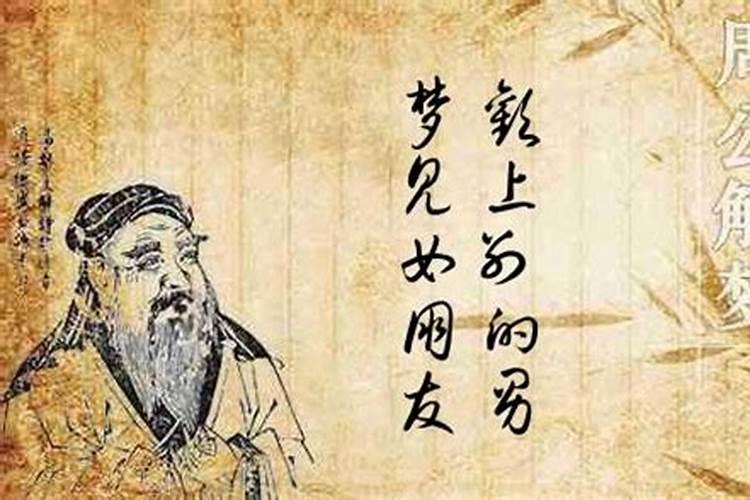 梦见女朋友
欢上别的男
周公解梦